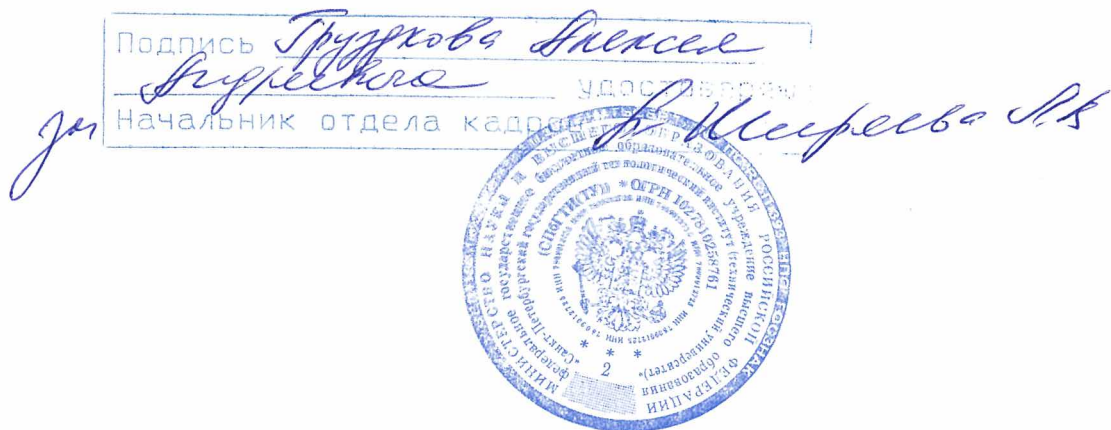 Подпись Груздкова Алексея
Андреевича удостоверяю
Зам Начальник отдела кадров Ширяева Л.В
МИНИСТЕРСТВО НАУКИ И ВЫСШЕГО ОБРАЗОВАНИЯ РОССИЙСКОЙ ФЕДЕРАЦИИ
федеральное государственное бюджетное образовательное учреждение высшего образования
"Санкт-Петербургский государственный технологический институт (технический университет)"
(СПбГТИ(ТУ)) * ОГРН 1027810258761
* * *
2